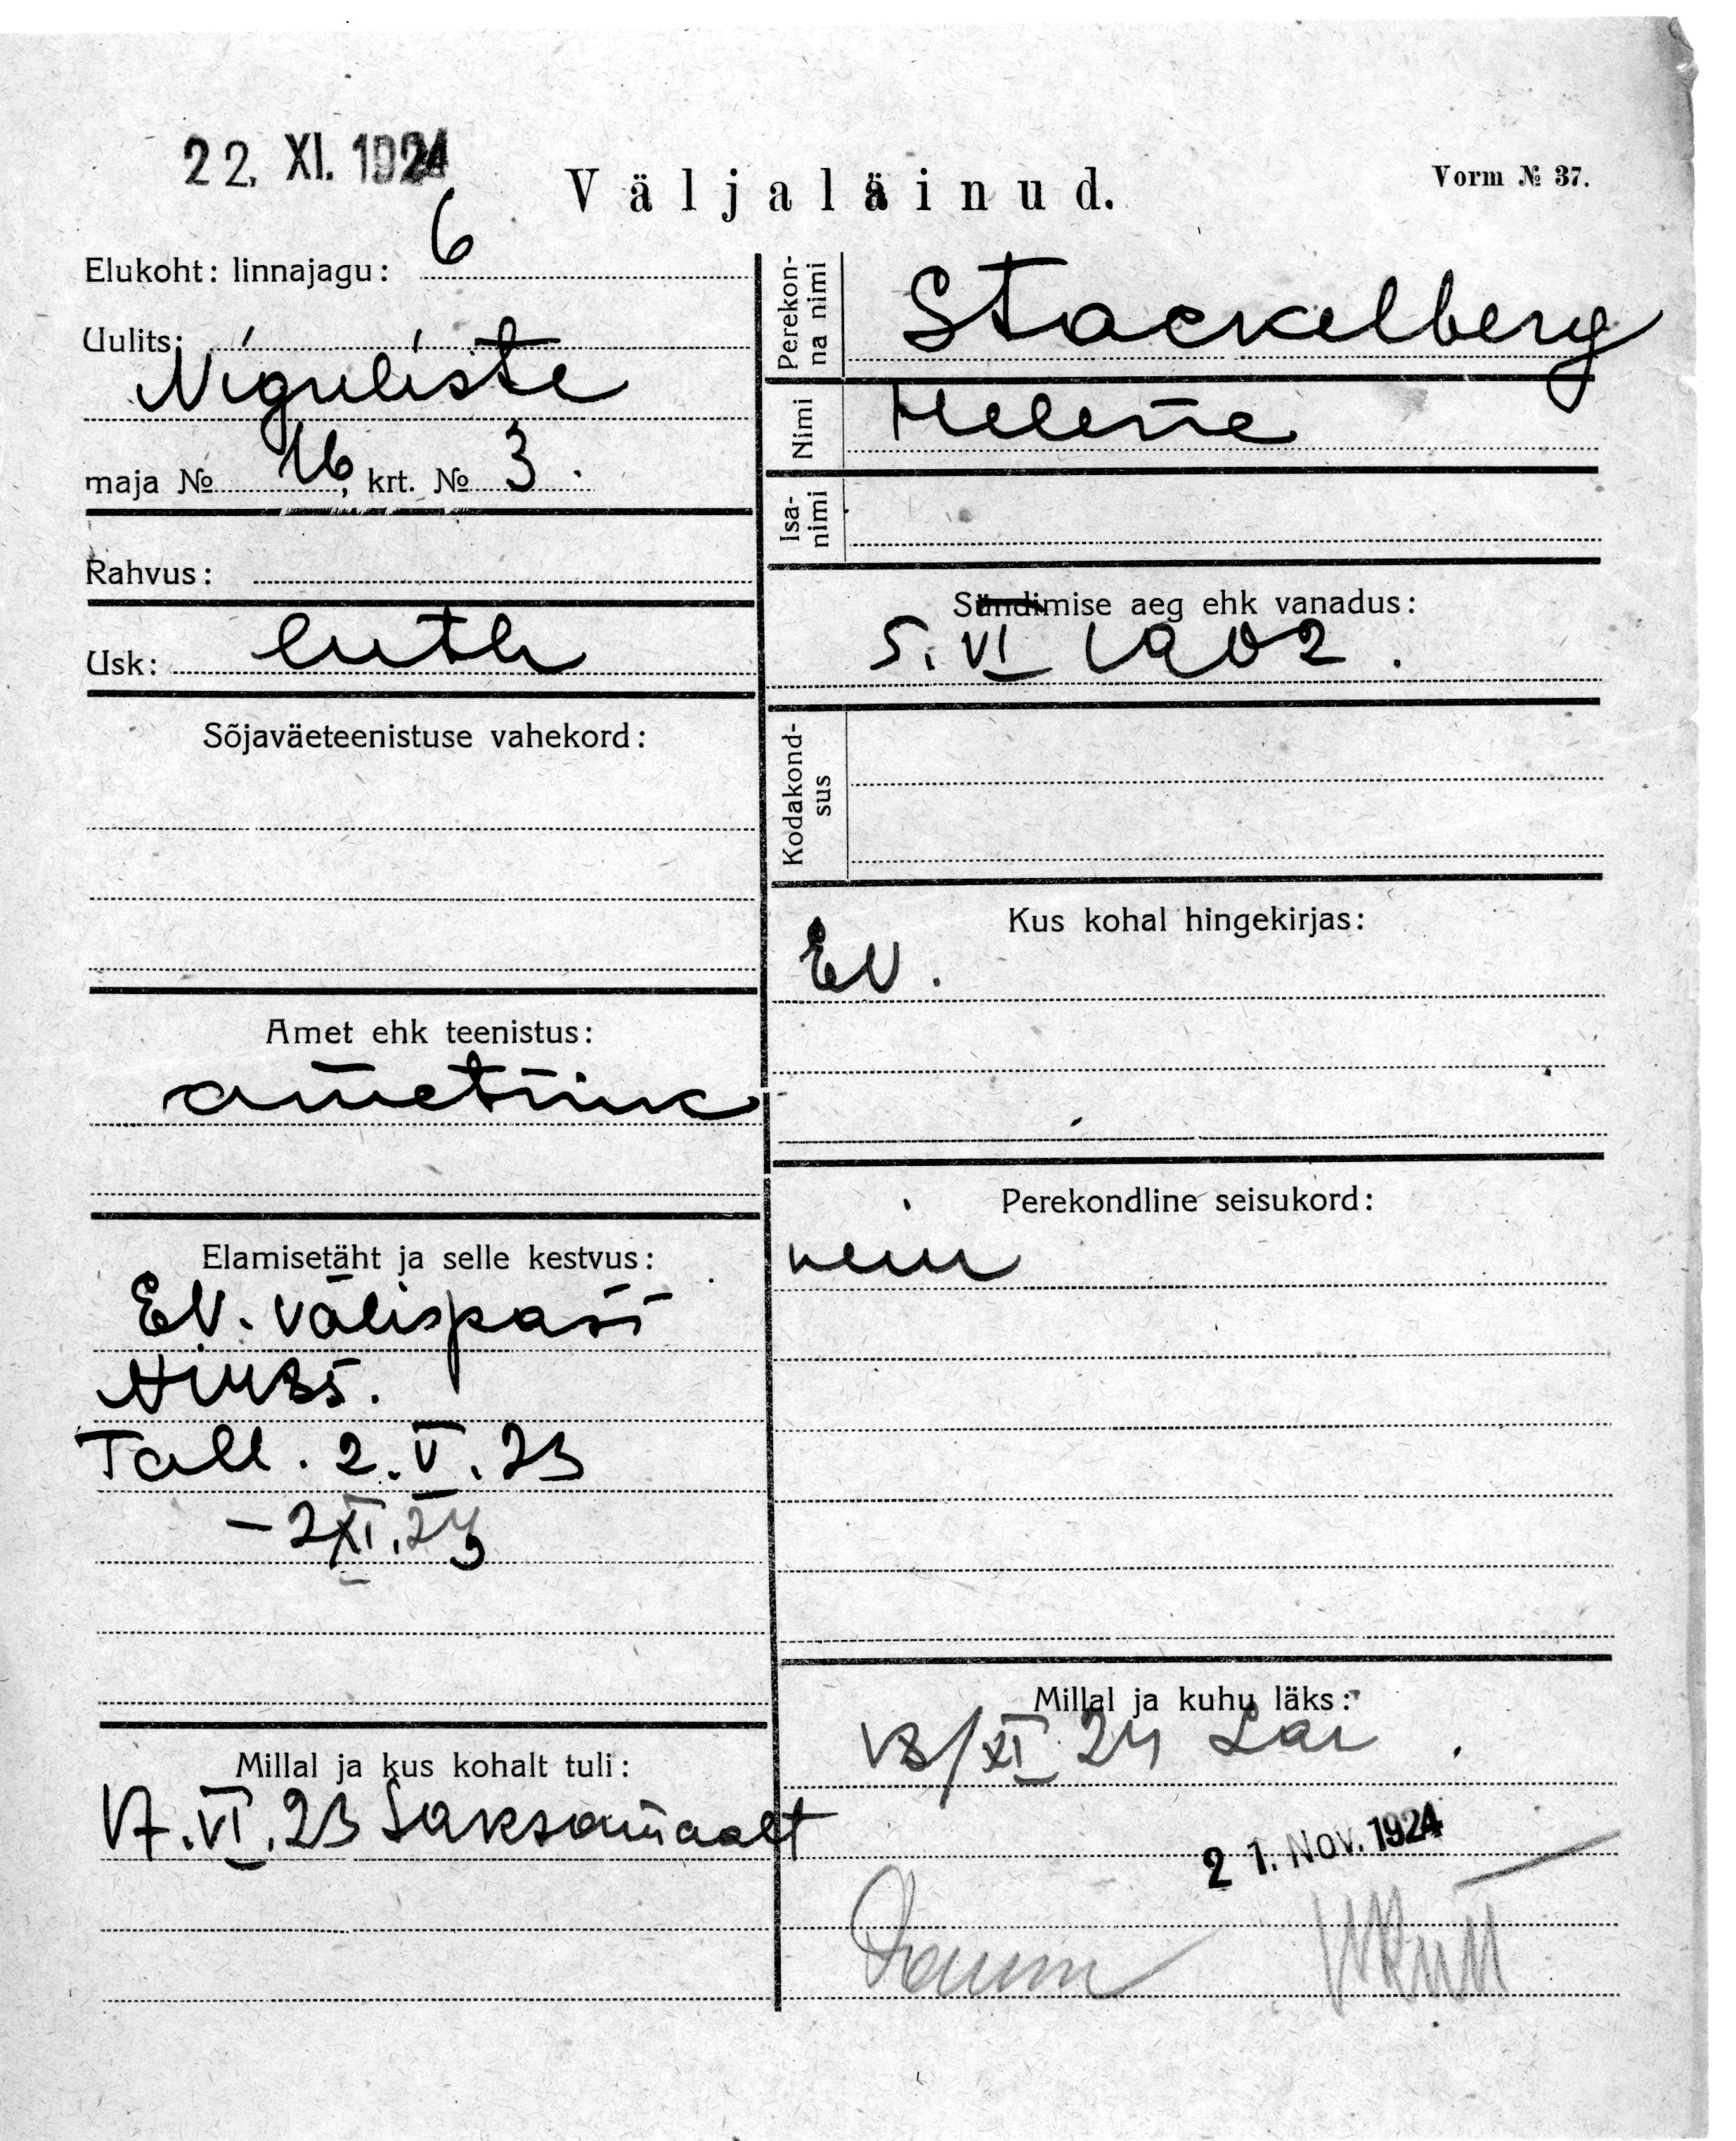 22. XI. 1924
Väljaläinud.
Vorm № 37.
Elukoht: linnajagu: 6
Uulits:
Niguliste
maja № 16, krt. № 3.
Rahvus:
Usk: luth
Sõjaväeteenistuse vahekord:
Amet ehk teenistus:
ametnik
Elamisetäht ja selle kestvus:
EV. välispass
Tall. 2.V.23
Millal ja kus kohalt tuli:
17.VI.23 Saksamaalt
Perekonna nimi
Stackelberg
Nimi
Helene
Isanimi
Sündimise aeg ehk vanadus:
5. VI 1902.
Kodakondsus
Kus kohal hingekirjas:
EV.
Perekondline seisukord:
neiu
Millal ja kuhu läks:
18/XI 24 Lai
21. Nov. 1924